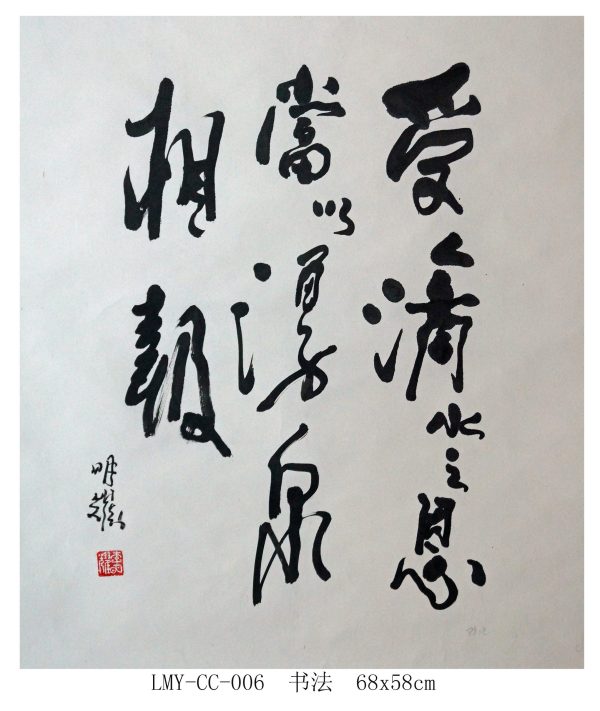 受人滴水之恩
當以湧泉
相報
明耀
LMY-CC-006 书法 68x58cm